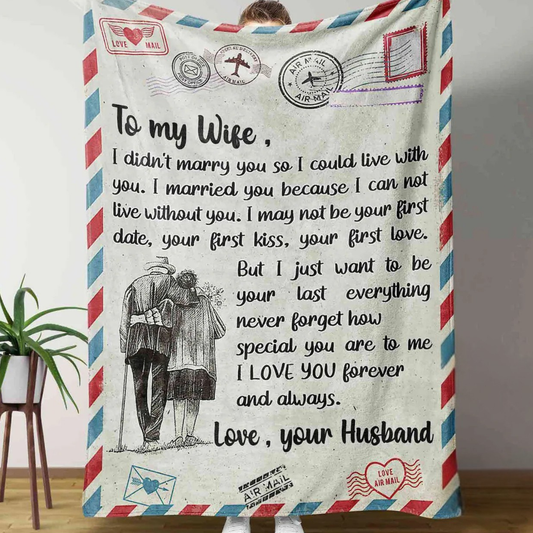 LOVE MAIL
AIR MAIL
AIR MAIL
AIR-MAIL
To my Wife ,
I didn't marry you so I could live with
you. I married you because I can not
live without you. I may not be your first
date, your first kiss, your first love.
But I just want to be
your last everything
never forget how
special you are to me
I LOVE YOU forever
and always.
Love , your Husband
AIR MAIL
LOVE
AIR MAIL